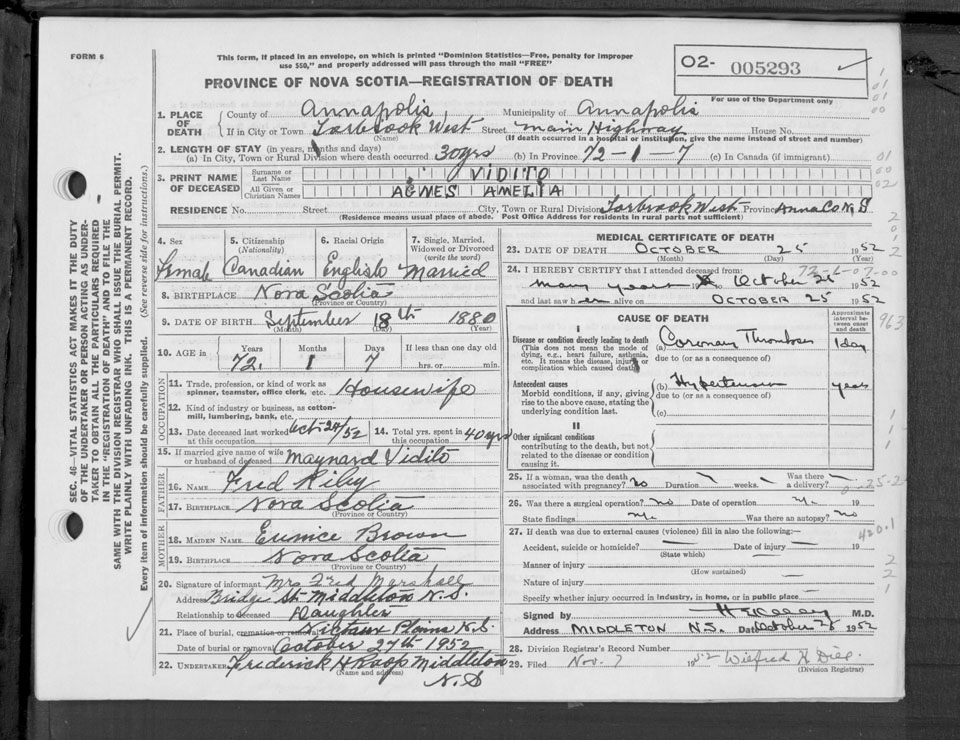 FORM 6
This form, if placed in an envelope, on which is printed "Dominion Statistics—Free, penalty for improper
use $50," and properly addressed will pass through the mail "FREE"
PROVINCE OF NOVA SCOTIA—REGISTRATION OF DEATH
O2- 005293
For use of the Department only
1. PLACE OF DEATH County of Annapolis Municipality of Annapolis
If in City or Town Torbrook West Street Main Highway House No.
(Name) (If death occurred in a hospital or institution, give the name instead of street and number)
2. LENGTH OF STAY (in years, months and days)
(a) In City, Town or Rural Division where death occurred 30 yrs (b) In Province 72-1-7 (c) In Canada (if immigrant)
3. PRINT NAME OF DECEASED Surname or Last Name VIDITO
All Given or Christian Names AGNES AMELIA
RESIDENCE No. Street City, Town or Rural Division Torbrook West Province Anna Co N.S
(Residence means usual place of abode. Post Office Address for residents in rural parts not sufficient)
4. Sex 5. Citizenship (Nationality) 6. Racial Origin 7. Single, Married, Widowed or Divorced (write the word)
Female Canadian English Married
8. BIRTHPLACE Nova Scotia
(Province or Country)
9. DATE OF BIRTH September 18th 1880
(Month) (Day) (Year)
10. AGE in Years Months Days If less than one day old
72 1 7 hrs. or min.
OCCUPATION
11. Trade, profession, or kind of work as spinner, teamster, office clerk, etc. Housewife
12. Kind of industry or business, as cotton-mill, lumbering, bank, etc.
13. Date deceased last worked at this occupation Oct-24/52 14. Total yrs. spent in this occupation 40 yrs
15. If married give name of wife or husband of deceased Maynard Vidito
FATHER
16. NAME Fred Riley
17. BIRTHPLACE Nova Scotia
(Province or Country)
MOTHER
18. MAIDEN NAME Eunice Brown
19. BIRTHPLACE Nova Scotia
(Province or Country)
20. Signature of informant Mrs Fred Marshall
Address Bridge St. Middleton N.S.
Relationship to deceased Daughter
21. Place of burial, cremation or removal Nictaux Plains N.S
Date of burial or removal October 27th 1952
22. UNDERTAKER Frederick H Roop Middleton
(Name and address) N.S
MEDICAL CERTIFICATE OF DEATH
23. DATE OF DEATH OCTOBER 25 1952
(Month) (Day) (Year)
24. I HEREBY CERTIFY that I attended deceased from:
many years to October 25 1952
and last saw her alive on OCTOBER 25 1952
CAUSE OF DEATH
Approximate interval between onset and death
I
Disease or condition directly leading to death
(This does not mean the mode of dying, e.g., heart failure, asthenia, etc. It means the disease, injury or complication which caused death)
(a) Coronary Thrombosis 1 day
due to (or as a consequence of)
Antecedent causes
Morbid conditions, if any, giving rise to the above cause, stating the underlying condition last.
(b) Hypertension years
due to (or as a consequence of)
(c)
II
Other significant conditions
contributing to the death, but not related to the disease or condition causing it.
25. If a woman, was the death associated with pregnancy? no Duration weeks. Was there a delivery?
26. Was there a surgical operation? no Date of operation
State findings Was there an autopsy? no
27. If death was due to external causes (violence) fill in also the following:—
Accident, suicide or homicide? Date of injury 19
(State which)
Manner of injury
(How sustained)
Nature of injury
Specify whether injury occurred in industry, in home, or in public place
Signed by M.D.
Address MIDDLETON N.S. Date October 1952
28. Division Registrar's Record Number
29. Filed Nov. 7 1952 Wilfred
(Division Registrar)
963
420.1
SEC. 46—VITAL STATISTICS ACT MAKES IT THE DUTY
OF THE UNDERTAKER OR PERSON ACTING AS UNDER-
TAKER TO OBTAIN ALL THE PARTICULARS REQUIRED
IN THE "REGISTRATION OF DEATH" AND TO FILE THE
SAME WITH THE DIVISION REGISTRAR WHO SHALL ISSUE THE BURIAL PERMIT.
WRITE PLAINLY WITH UNFADING INK. THIS IS A PERMANENT RECORD.
Every item of information should be carefully supplied. (See reverse side for instructions.)